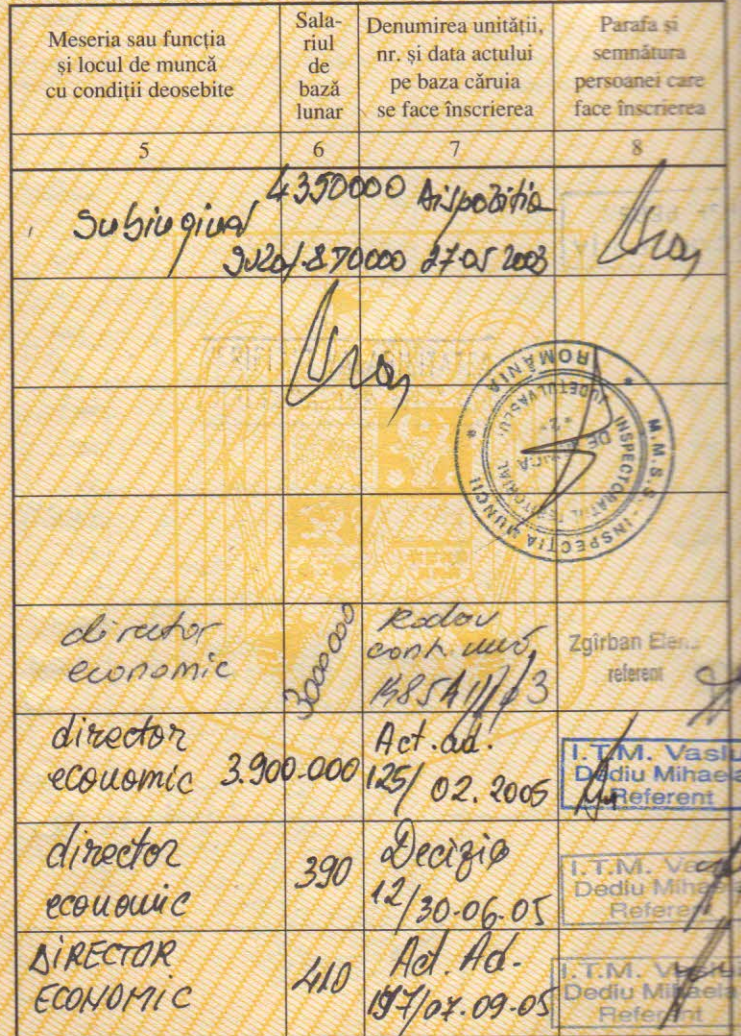 Meseria sau funcția
și locul de muncă
cu condiții deosebite
Sala-
riul
de
bază
lunar
Denumirea unității,
nr. și data actului
pe baza căruia
se face înscrierea
Parafa și
semnătura
persoanei care
face înscrierea
5 6 7 8
4350000 Dispoziția
870000 27.05 2003
ROMÂNIA
M.M.S.S. - INSPECȚIA MUNCII
director
economic
3000000
Zgîrban
referent
director
economic
3.900.000
Act. ad.
125/ 02. 2005
I.T.M. Vaslu
Dediu Mihaela
Referent
director
economic
390
Decizia
12/30-06-05
I.T.M.
Dediu Mihaela
Referent
DIRECTOR
ECONOMIC
410
Act. Ad.
197/07.09-05
I.T.M. Vaslui
Dediu Mihaela
Referent